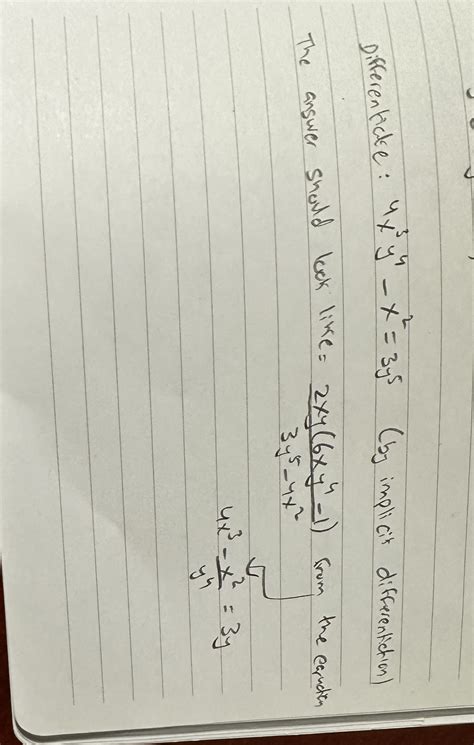 Differentiate: 4x³y⁴ - x² = 3y⁵ (by implicit differentiation)
The answer should look like = 2xy(6xy⁴-1) / 3y⁵-4x² from the equation
4x³ - x²/y⁴ = 3y